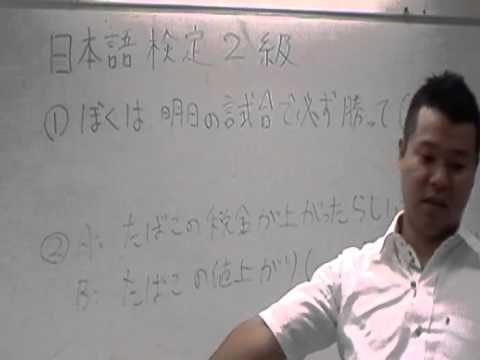 日本語検定2級
①ぼくは明日の試合で必ず勝って(
②A:たばこの税金が上がったらしい
B:たばこの値上がり(